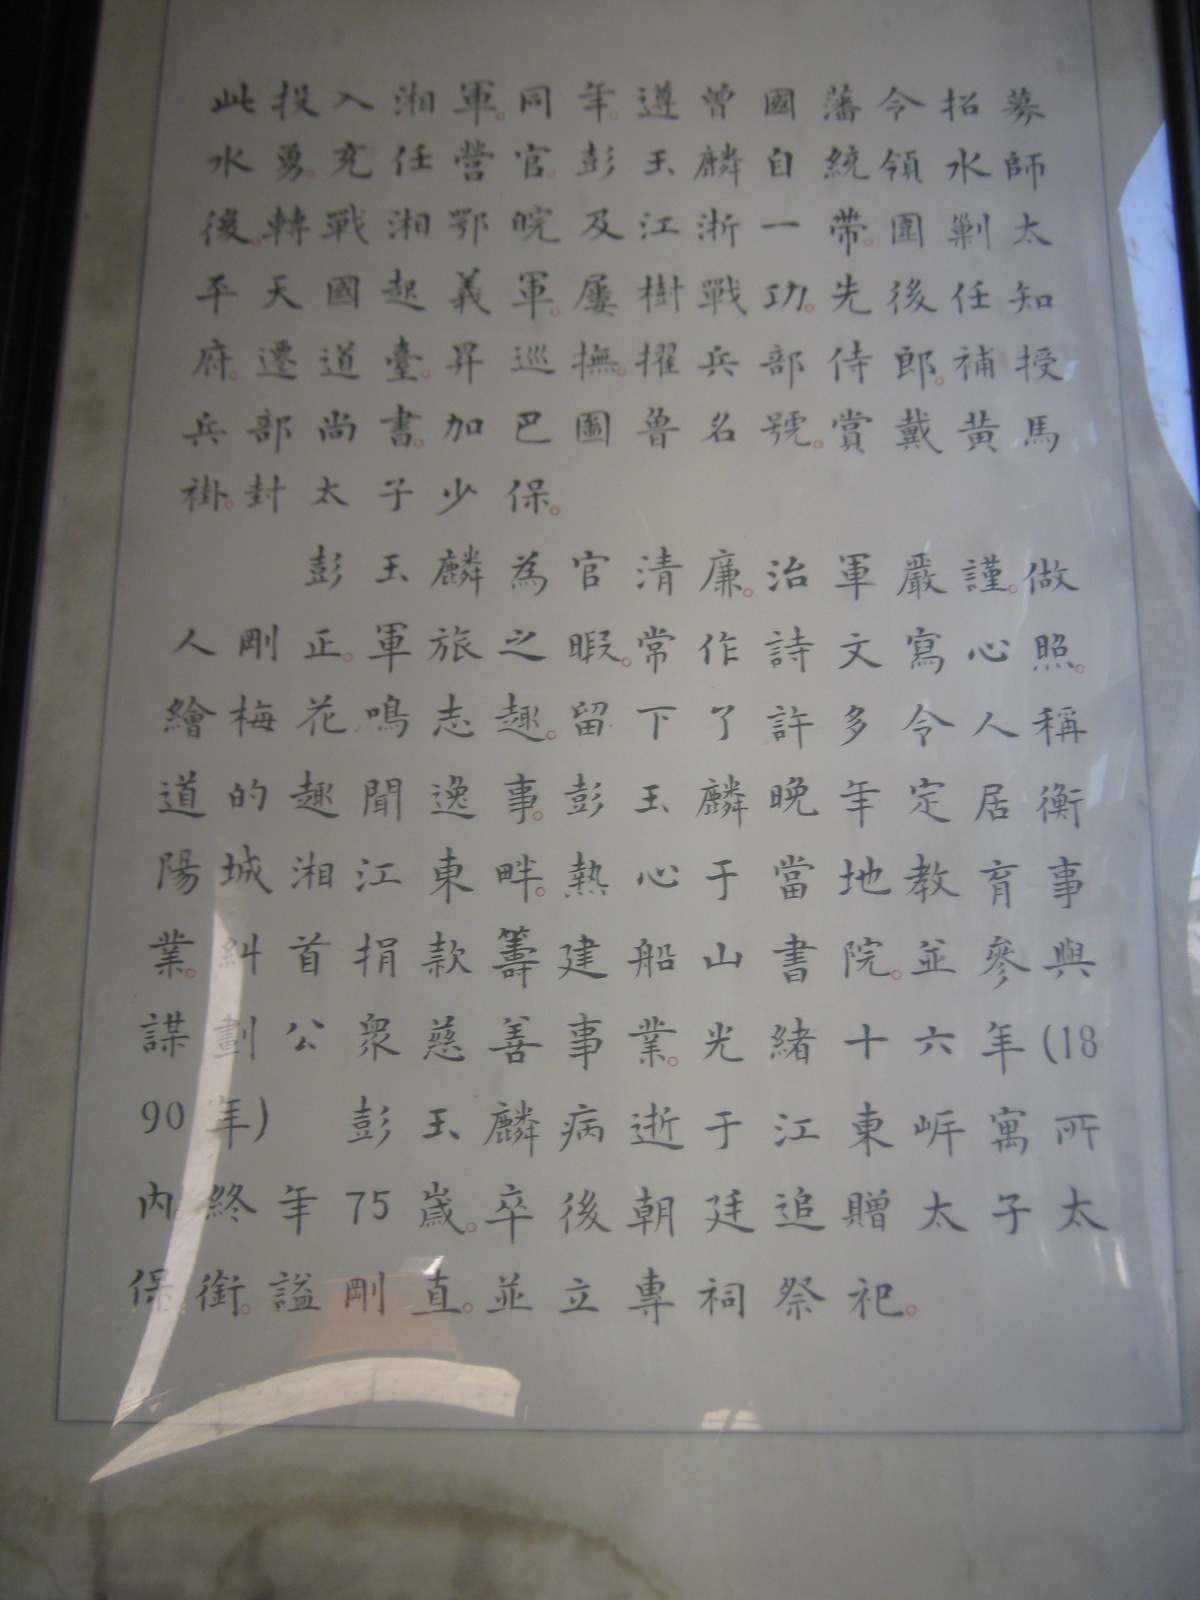 此投入湘軍。同年。遵曾國藩令招募
水勇。充任營官。彭玉麟自統領水師
後。轉戰湘鄂皖及江浙一帶。圍剿太
平天國起義軍。屢樹戰功。先後任知
府。遷道臺。昇巡撫。擢兵部侍郎。補授
兵部尚書。加巴圖魯名號。賞戴黃馬
褂。封太子少保。
彭玉麟為官清廉。治軍嚴謹。做
人剛正。軍旅之暇。常作詩文寫心照。
繪梅花鳴志趣。留下了許多令人稱
道的趣聞逸事。彭玉麟晚年定居衡
陽城湘江東畔。熱心于當地教育事
業。糾首捐款籌建船山書院。並參與
謀劃公衆慈善事業。光緒十六年(18
90年) 彭玉麟病逝于江東岸寓所
內。終年75歲。卒後朝廷追贈太子太
保銜。謚剛直。並立專祠祭祀。